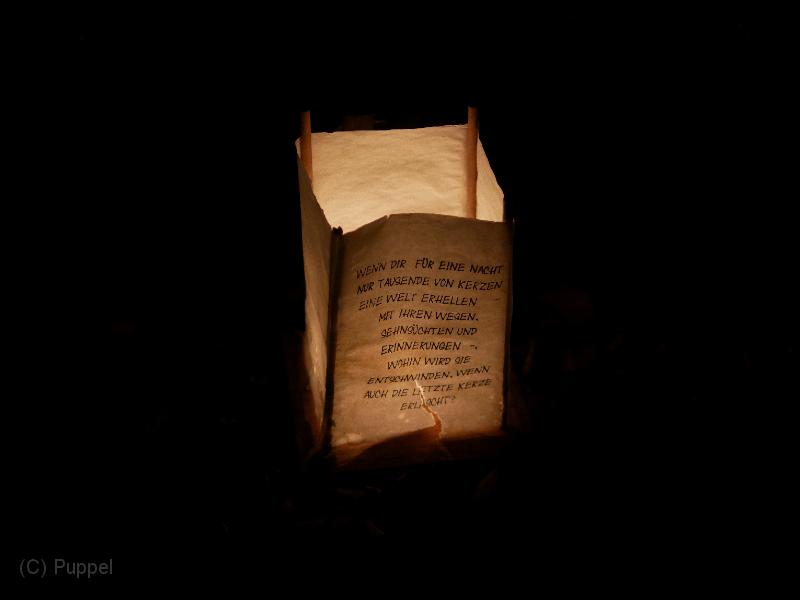 WENN DIR FÜR EINE NACHT
NUR TAUSENDE VON KERZEN
EINE WELT ERHELLEN
MIT IHREN WEGEN,
SEHNSÜCHTEN UND
ERINNERUNGEN –,
WOHIN WIRD SIE
ENTSCHWINDEN, WENN
AUCH DIE LETZTE KERZE
ERLISCHT?
(C) Puppel